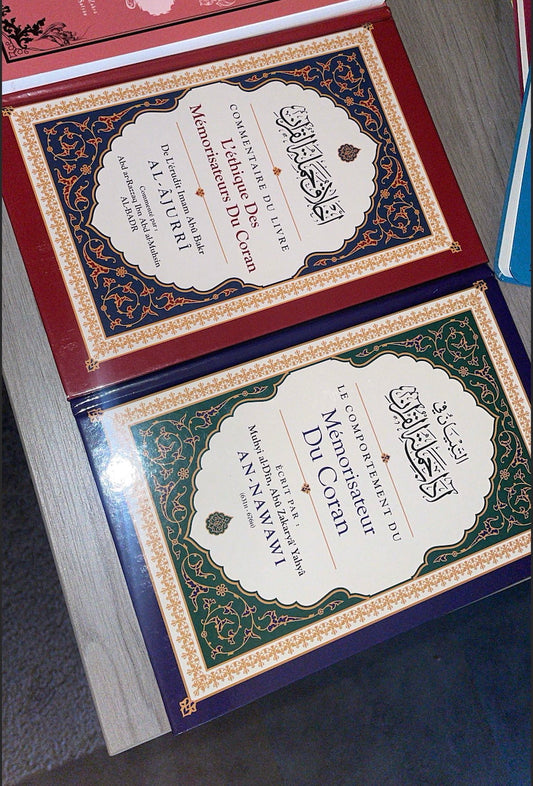 أخلاق حملة القرآن
COMMENTAIRE DU LIVRE
L'éthique Des
Mémorisateurs Du Coran
De L'érudit Imam Abû Bakr
AL-ÂJURRÎ
Commenté par :
Abd ar-Razzaq Ibn Abd al-Muhsin
AL-BADR
التبيان في
آداب حملة القرآن
LE COMPORTEMENT DU
Mémorisateur
Du Coran
ÉCRIT PAR :
Muhyî al-Dîn, Abû Zakaryâ' Yahyâ
AN-NAWAWI
(631H - 676H)